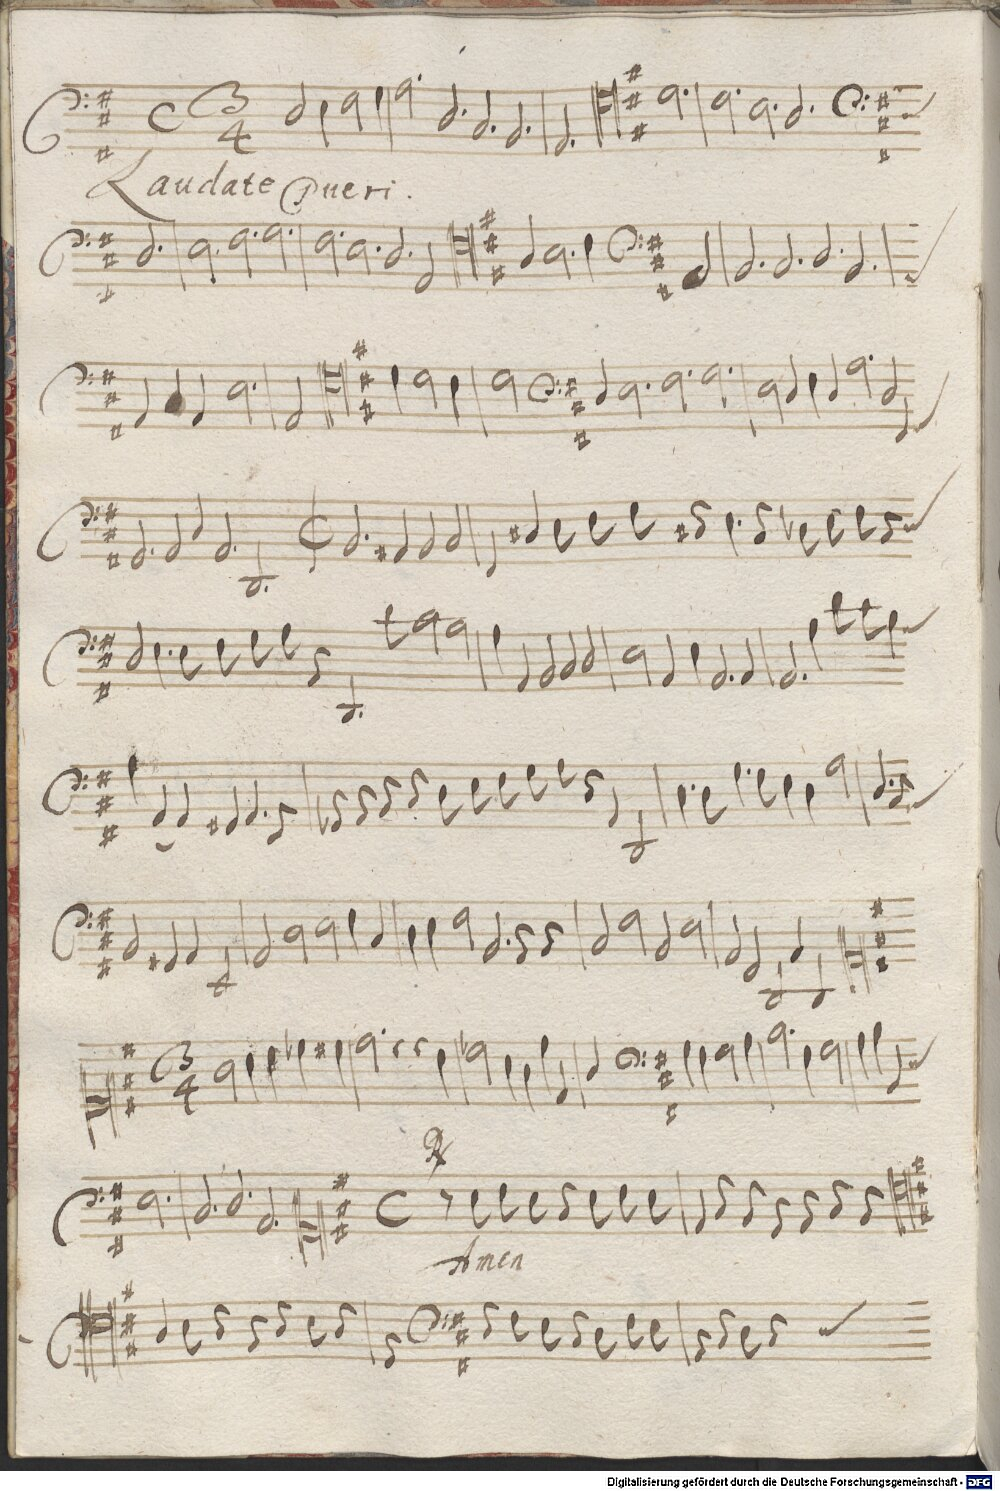 C 3/4
Laudate Pueri.
3/4
C
Amen
Digitalisierung gefördert durch die Deutsche Forschungsgemeinschaft - DFG